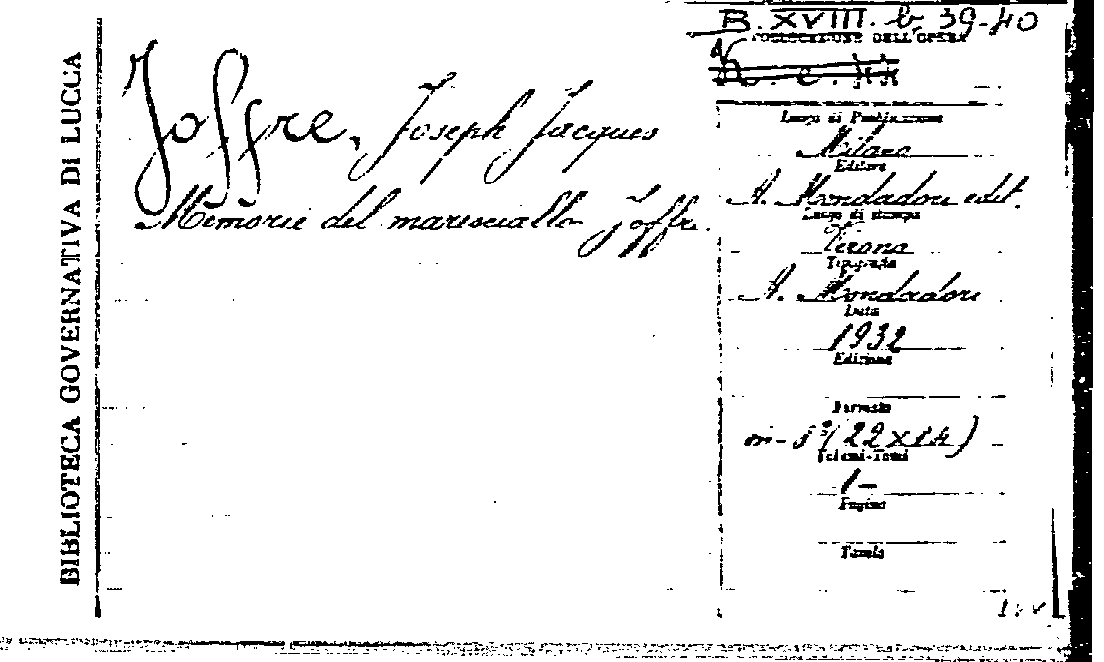 BIBLIOTECA GOVERNATIVA DI LUCCA
B. XVIII. b 39-40
COLLOCAZIONE DELL'OPERA
Joffre, Joseph Jacques
Memorie del maresciallo Joffre.
Luogo di Pubblicazione
Milano
Editore
A. Mondadori edit.
Luogo di stampa
Verona
Tipografia
A. Mondadori
Data
1932
Edizione
Formato
in-8° (22x14)
Volumi-Tomi
1-
Pagine
Tavole